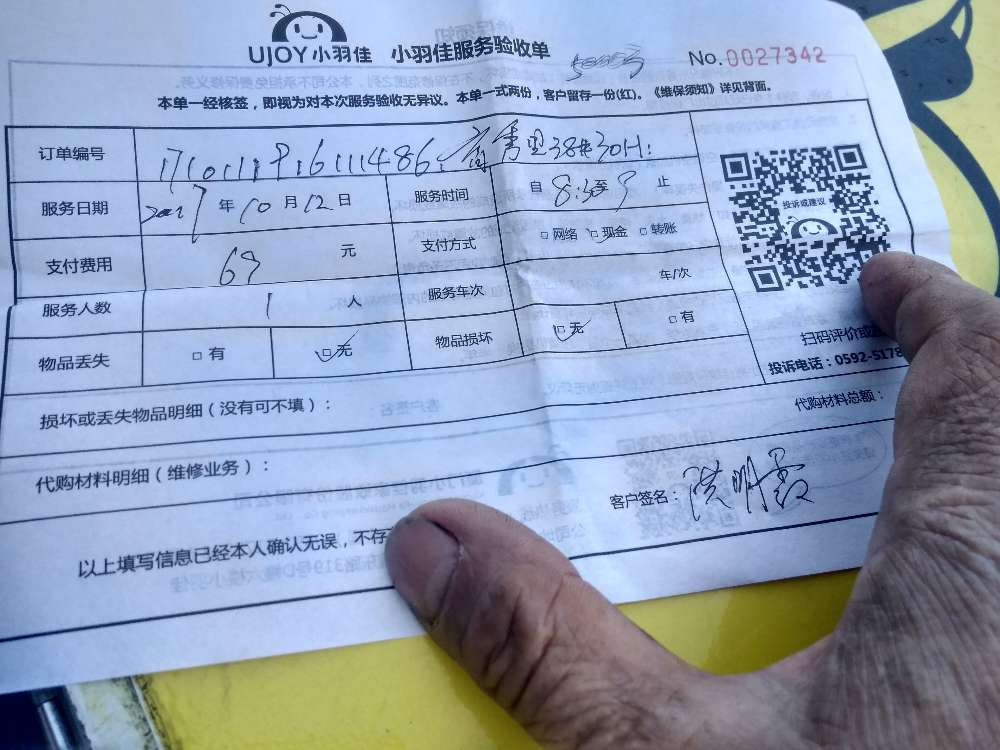 UJOY小羽佳 小羽佳服务验收单 No.0027342
本单一经核签，即视为对本次服务验收无异议。本单一式两份，客户留存一份(红)。《维保须知》详见背面。
订单编号 秀里38#30H
服务日期 2017年10月12日 服务时间 自8:30至9止
支付费用 69 元 支付方式 □网络 □现金 □转账
服务人数 1 人 服务车次 车/次
物品丢失 □有 □无 物品损坏 □无 □有
投诉或建议
扫码评价或
投诉电话：0592-5178
损坏或丢失物品明细（没有可不填）：
代购材料总额：
代购材料明细（维修业务）：
客户签名：洪明霞
以上填写信息已经本人确认无误，不存